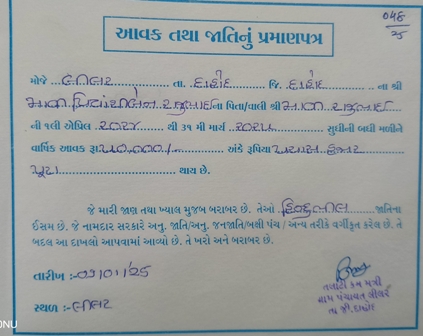 048
25
આવક તથા જાતિનું પ્રમાણપત્ર
મોજે લીલર તા. દાહોદ જિ. દાહોદ ના શ્રી
ના પિતા/વાલી શ્રી
ની ૧લી એપ્રિલ ૨૦૨૪ થી ૩૧ મી માર્ચ ૨૦૨૫ સુધીની બધી મળીને
વાર્ષિક આવક રૂા ૫૦,૦૦૦/- અંકે રૂપિયા પચાસ હજાર
પૂરા થાય છે.
જે મારી જાણ તથા ખ્યાલ મુજબ બરાબર છે. તેઓ હિન્દુભીલ જાતિના
ઈસમ છે. જે નામદાર સરકારે અનુ. જાતિ/અનુ. જનજાતિ/બક્ષી પંચ / અન્ય તરીકે વર્ગીકૃત કરેલ છે. તે
બદલ આ દાખલો આપવામાં આવ્યો છે. તે ખરો અને બરાબર છે.
તારીખ :-
સ્થળ :- લીલર
તલાટી કમ મંત્રી
ગ્રામ પંચાયત લીલર
તા.જી.દાહોદ